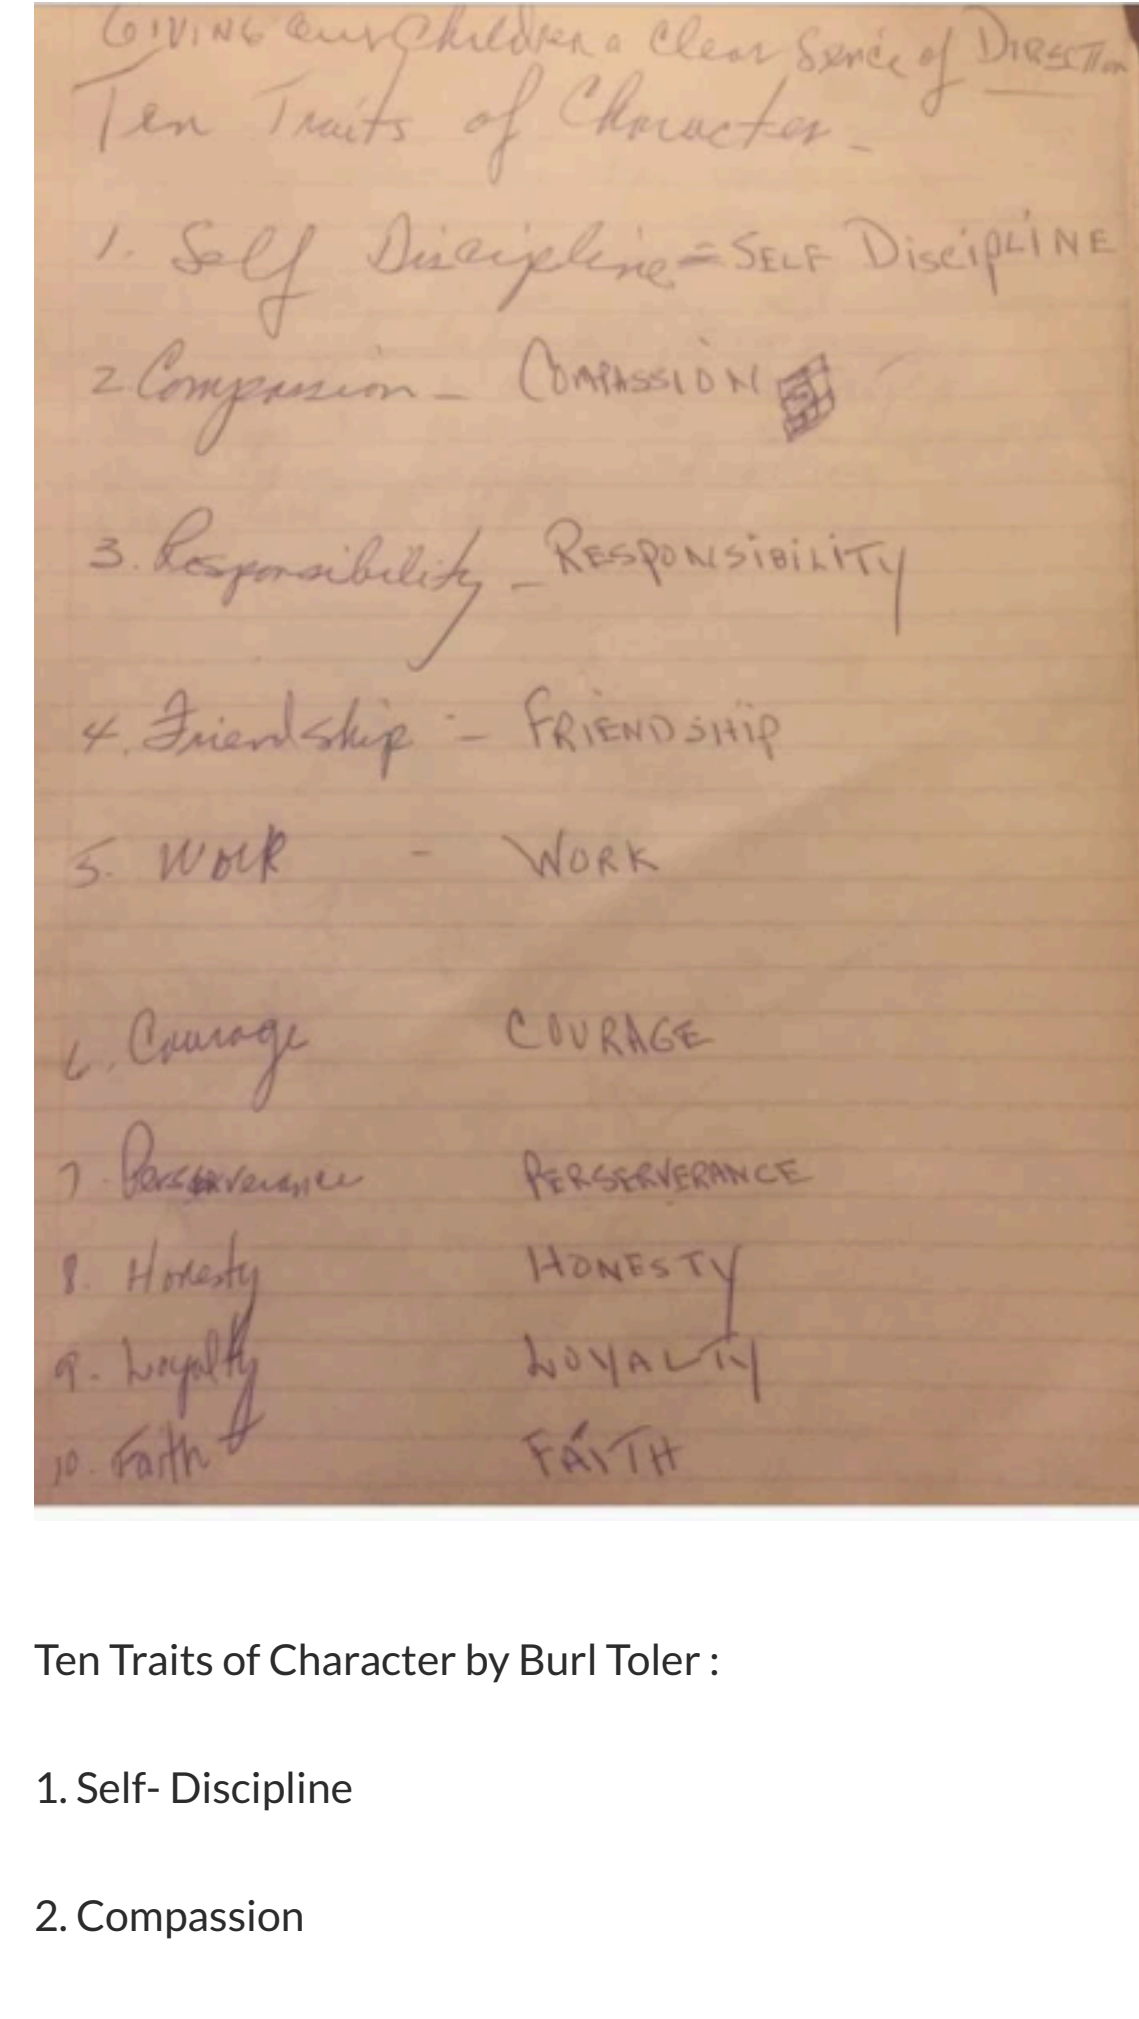 GIVING Our Children a Clear Sence of DIRECTION
Ten Traits of Character -
1. Self Discipline = SELF DISCIPLINE
2 Compassion - COMPASSION
3. Responsibility - RESPONSIBILITY
4. Friendship - FRIENDSHIP
5. WORK - WORK
6. Courage COURAGE
7. Perserverance PERSERVERANCE
8. Honesty HONESTY
9. Loyalty LOYALTY
10. Faith FAITH
Ten Traits of Character by Burl Toler :
1. Self- Discipline
2. Compassion